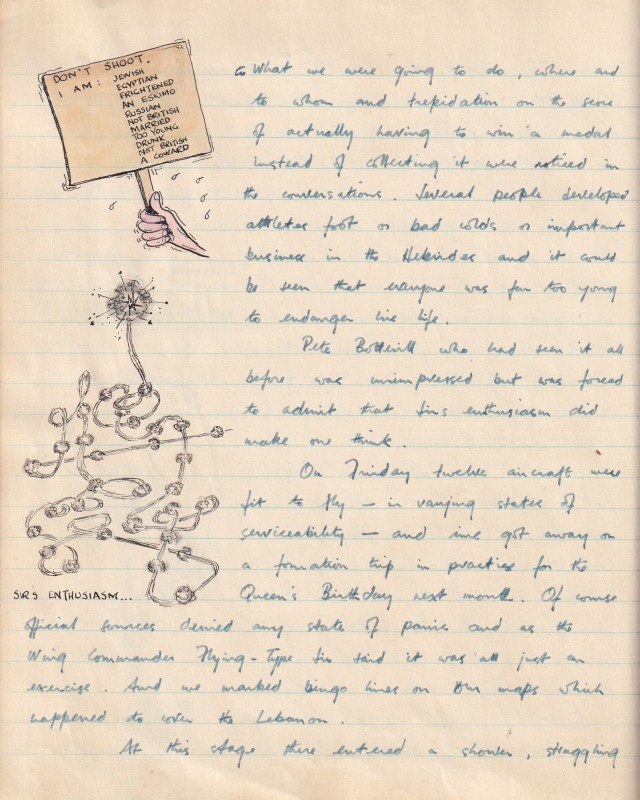 DON'T SHOOT.
I AM: JEWISH
EGYPTIAN
FRIGHTENED
AN ESKIMO
RUSSIAN
NOT BRITISH
MARRIED
TOO YOUNG
DRUNK
NOT BRITISH
A COWARD
to What we were going to do, where and
to whom and trepidation on the score
of actually having to win a medal
instead of collecting it were noticed in
the conversations. Several people developed
athletes foot or bad colds or important
business in the Hebrides and it could
be seen that everyone was far too young
to endanger his life.
Pete Botterill who had seen it all
before was unimpressed but was forced
to admit that Sirs enthusiasm did
make one think.
On Friday twelve aircraft were
fit to fly — in varying states of
serviceability — and nine got away on
a formation trip in practice for the
Queen's Birthday next month. Of course
SIRS ENTHUSIASM...
official sources denied any state of panic and as the
Wing Commander Flying-Type Sir said it was all just an
exercise. And we marked bingo lines on our maps which
happened to cover the Lebanon.
At this stage there entered a shower, straggling